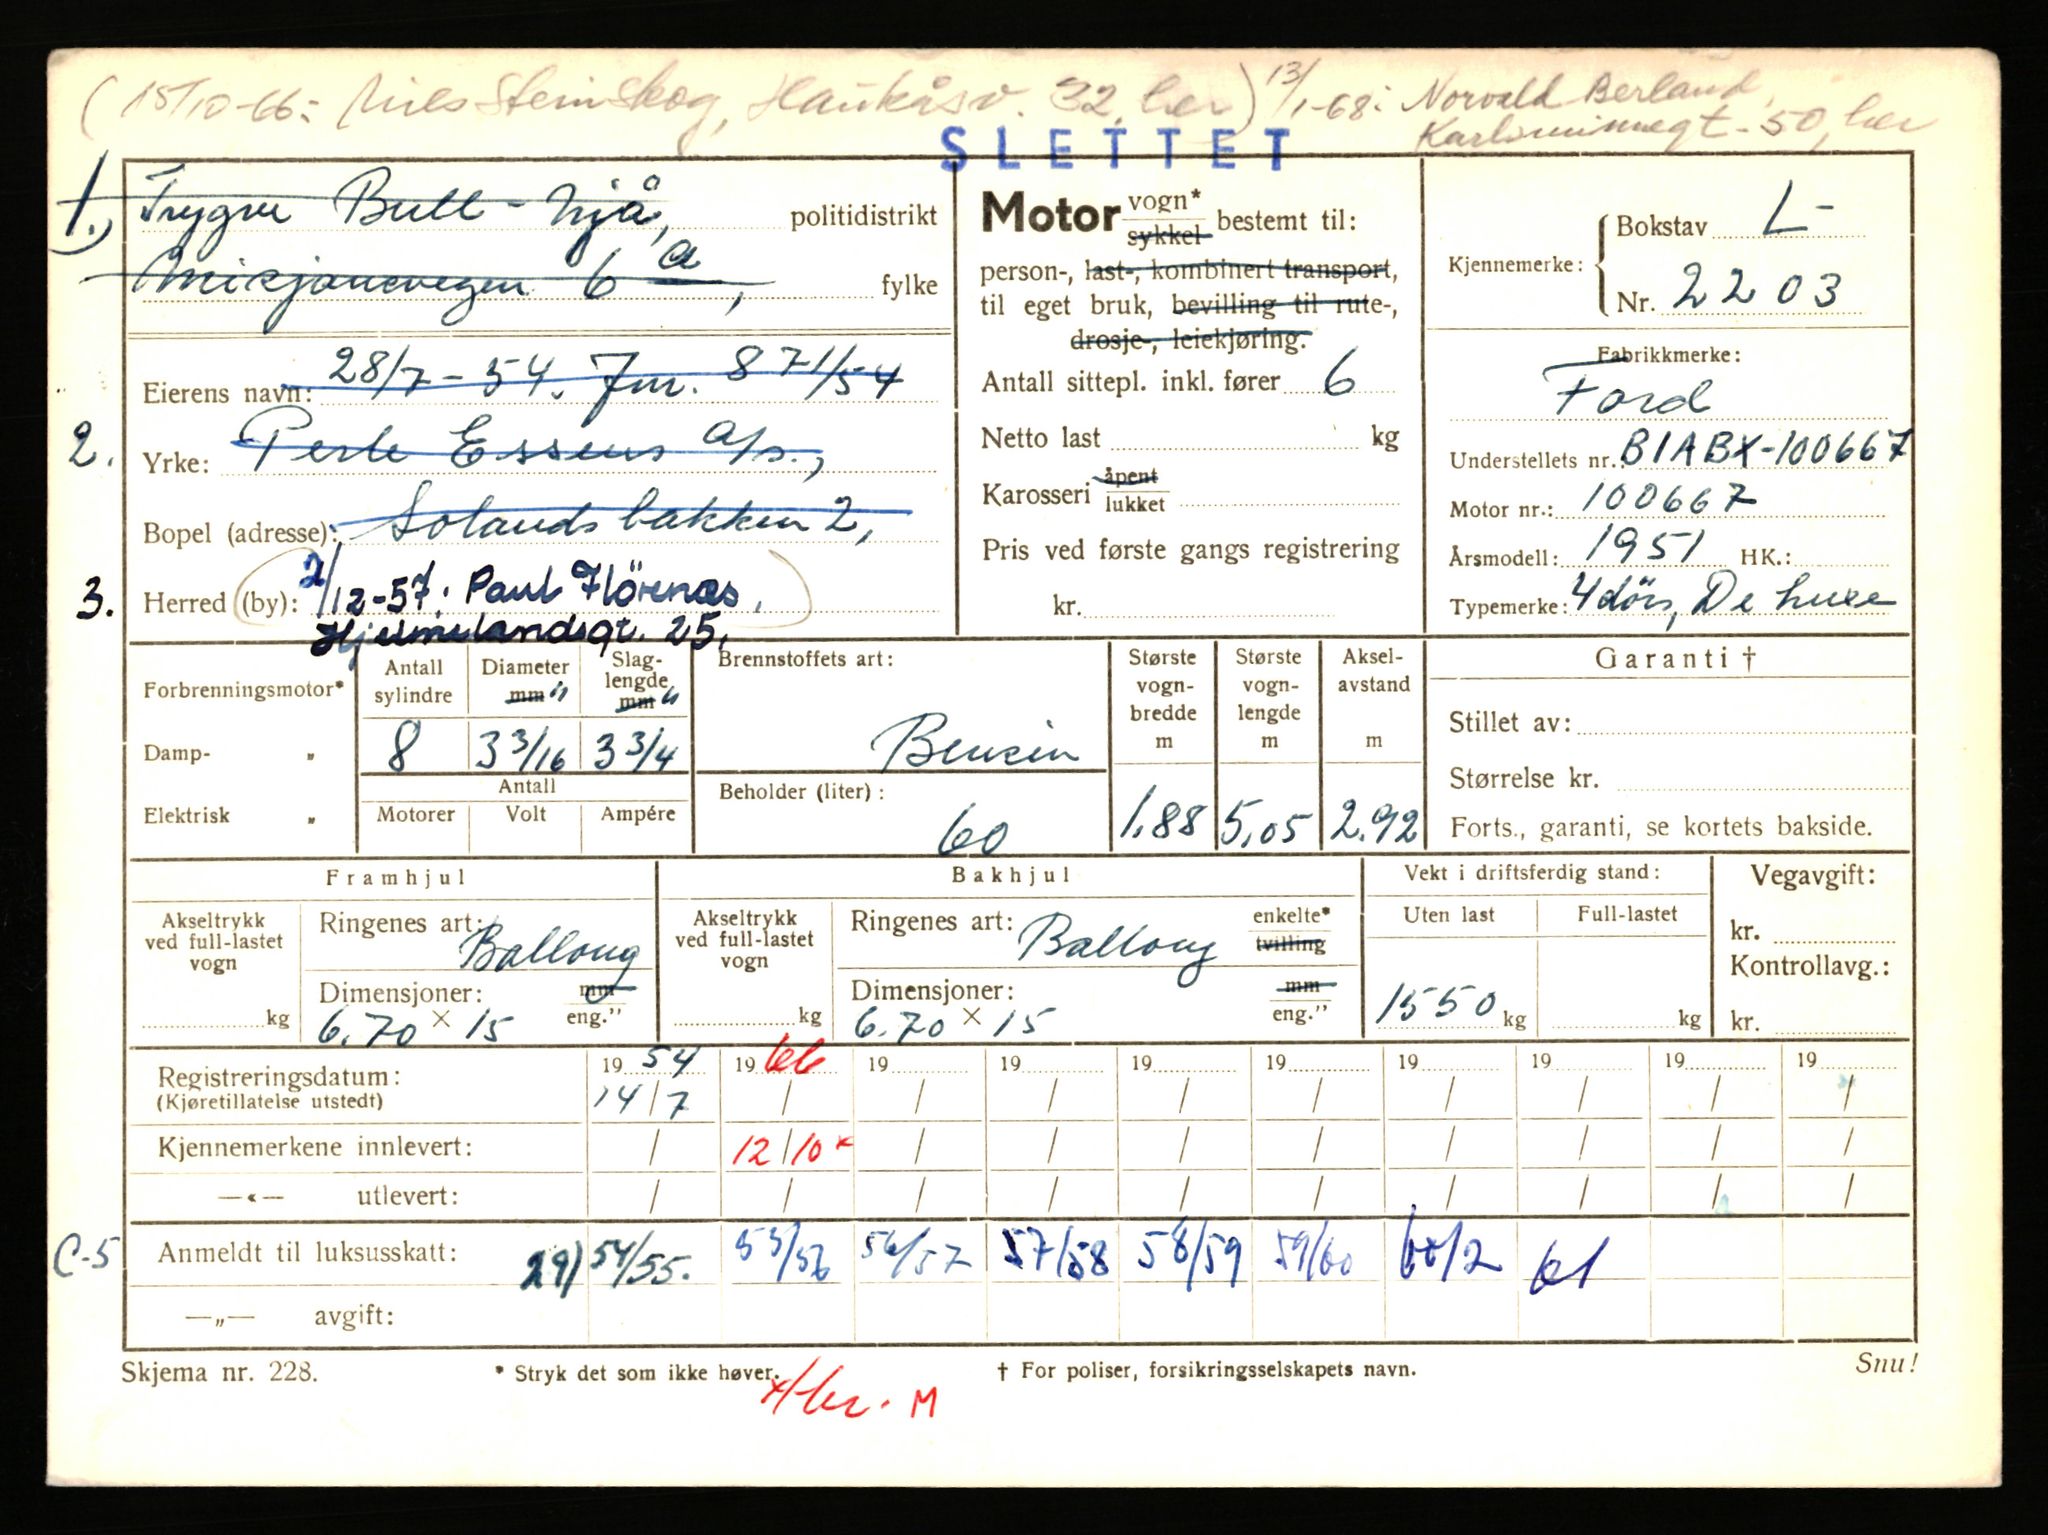 (15/10-66: Nils Steinskog, Haukåsv. 32, her) 13/1-68: Norvald Berland,
Karlsminnegt. 50, her
SLETTET
1. Trygve Bull-Njå, politidistrikt
Misjonsvegen 6 a, fylke
Eierens navn: 28/7-54. Jnr. 871/54
2. Yrke: Perle Essens a/s.,
Bopel (adresse): Solandsbakken 2,
3. Herred (by): 2/12-57: Paul Hörenæs,
Hjelmelandsgt. 25,
Motor vogn* sykkel bestemt til:
person-, last-, kombinert transport,
til eget bruk, bevilling til rute-,
drosje-, leiekjøring.
Antall sittepl. inkl. fører 6
Netto last kg
Karosseri åpent lukket
Pris ved første gangs registrering
kr.
Kjennemerke: Bokstav L-
Nr. 2203
Fabrikkmerke:
Ford
Understellets nr.: B1ABX-100667
Motor nr.: 100667
Årsmodell: 1951 HK.:
Typemerke: 4dörs, De luxe
Forbrenningsmotor*
Damp- „
Elektrisk „
Antall sylindre
8
Diameter mm "
3 3/16
Slaglengde mm "
3 3/4
Antall
Motorer Volt Ampére
Brennstoffets art:
Bensin
Beholder (liter):
60
Største vognbredde m
1,88
Største vognlengde m
5,05
Akselavstand m
2.92
Garanti †
Stillet av:
Størrelse kr.
Forts., garanti, se kortets bakside.
Framhjul
Akseltrykk ved full-lastet vogn
kg
Ringenes art: Ballong
Dimensjoner: mm eng."
6.70 × 15
Bakhjul
Akseltrykk ved full-lastet vogn
kg
Ringenes art: Ballong enkelte* tvilling
Dimensjoner: mm eng."
6.70 × 15
Vekt i driftsferdig stand:
Uten last Full-lastet
1550 kg kg
Vegavgift:
kr.
Kontrollavg.:
kr.
Registreringsdatum: 19 54 19 66 19 19 19 19 19 19 19 19
(Kjøretillatelse utstedt) 14/7 / / / / / / / / /
Kjennemerkene innlevert: / 12/10 × / / / / / / / /
—«— utlevert: / / / / / / / / / /
C-5 Anmeldt til luksusskatt: 29) 54/55. 55/56 56/57 57/58 58/59 59/60 60/2 61
—„— avgift:
Skjema nr. 228. * Stryk det som ikke høver. † For poliser, forsikringsselskapets navn. Snu!
M